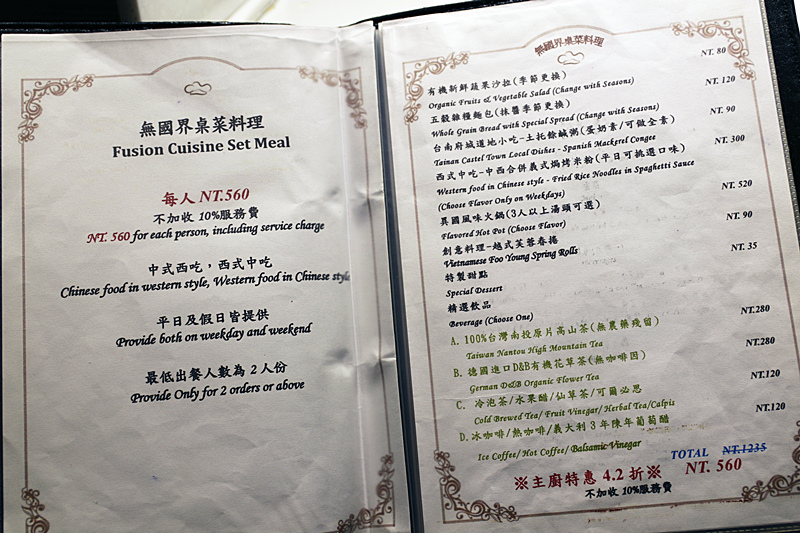 無國界桌菜料理
Fusion Cuisine Set Meal
每人 NT.560
不加收 10%服務費
NT. 560 for each person, including service charge
中式西吃，西式中吃
Chinese food in western style, Western food in Chinese style
平日及假日皆提供
Provide both on weekday and weekend
最低出餐人數為 2 人份
Provide Only for 2 orders or above
無國界桌菜料理
有機新鮮蔬果沙拉(季節更換) NT. 80
Organic Fruits & Vegetable Salad (Change with Seasons)
五穀雜糧麵包(抹醬季節更換) NT. 120
Whole Grain Bread with Special Spread (Change with Seasons)
台南府城道地小吃-土托餘鹹粥(蛋奶素/可做全素) NT. 90
Tainan Castel Town Local Dishes - Spanish Mackerel Congee
西式中吃-中西合併義式焗烤米粉(平日可挑選口味) NT. 300
Western food in Chinese style - Fried Rice Noodles in Spaghetti Sauce
(Choose Flavor Only on Weekdays)
異國風味火鍋(3人以上湯頭可選) NT. 520
Flavored Hot Pot (Choose Flavor)
創意料理-越式芙蓉春捲 NT. 90
Vietnamese Foo Young Spring Rolls
特製甜點 NT. 35
Special Dessert
精選飲品
Beverage (Choose One)
A. 100%台灣南投原片高山茶(無農藥殘留) NT.280
Taiwan Nantou High Mountain Tea
B. 德國進口D&B有機花草茶(無咖啡因) NT.280
German D&B Organic Flower Tea
C. 冷泡茶/水果醋/仙草茶/可爾必思 NT.120
Cold Brewed Tea/ Fruit Vinegar/ Herbal Tea/Calpis
D.冰咖啡/熱咖啡/義大利3年陳年葡萄醋 NT.120
Ice Coffee/ Hot Coffee/ Balsamic Vinegar
TOTAL NT.1235
※主廚特惠 4.2 折※ NT. 560
不加收 10%服務費